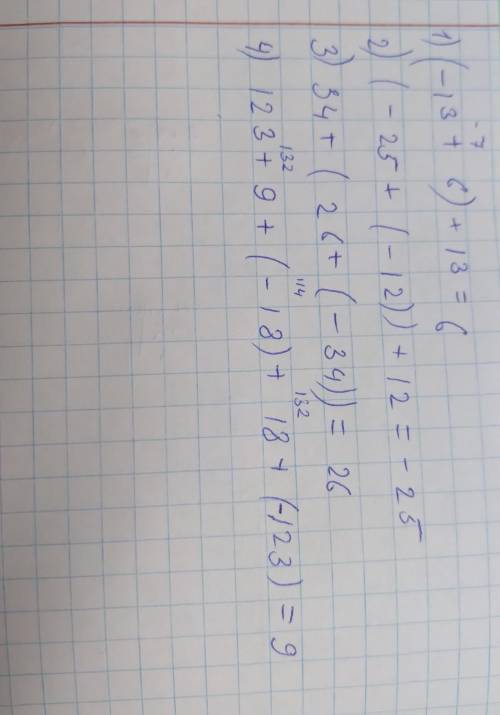 -7
1) (-13 + 6) + 13 = 6
2) (-25 + (-12)) + 12 = -25
3) 34 + (26 + (-34)) = 26
132 114 132
4) 123 + 9 + (-18) + 18 + (-123) = 9